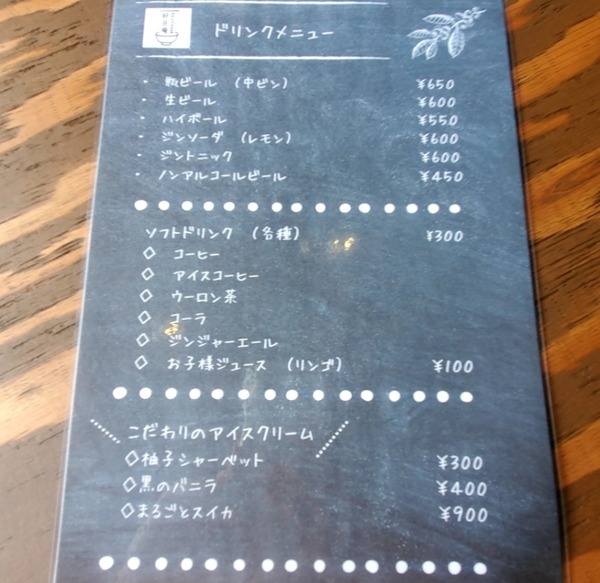 ドリンクメニュー
・ 瓶ビール （中ビン） ¥650
・ 生ビール ¥600
・ ハイボール ¥550
・ ジンソーダ （レモン） ¥600
・ ジントニック ¥600
・ ノンアルコールビール ¥450
ソフトドリンク （各種） ¥300
◇ コーヒー
◇ アイスコーヒー
◇ ウーロン茶
◇ コーラ
◇ ジンジャーエール
◇ お子様ジュース （リンゴ） ¥100
こだわりのアイスクリーム
◇柚子シャーベット ¥300
◇黒のバニラ ¥400
◇まるごとスイカ ¥900